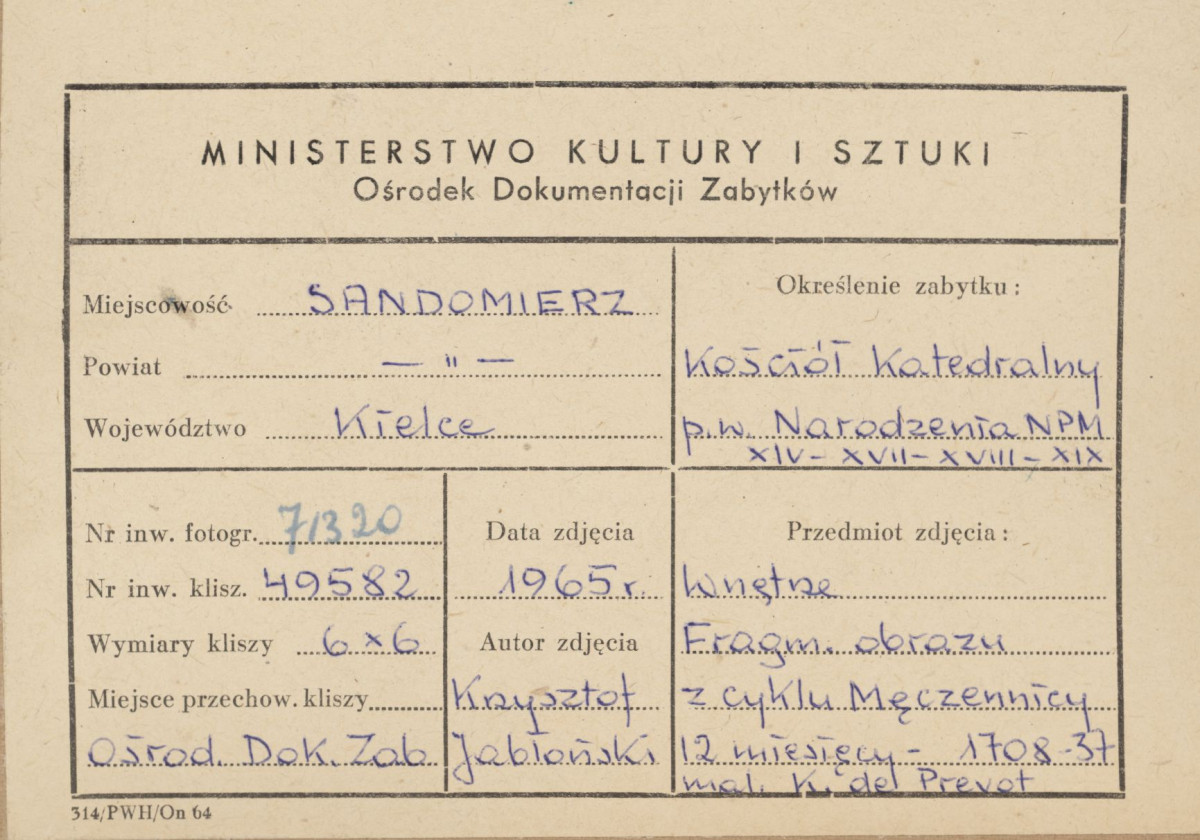 MINISTERSTWO KULTURY I SZTUKI
Ośrodek Dokumentacji Zabytków
Miejscowość SANDOMIERZ
Powiat — " —
Województwo Kielce
Określenie zabytku:
Kościół Katedralny
p.w. Narodzenia NPM
XIV - XVII - XVIII - XIX
Nr inw. fotogr. 71320
Nr inw. klisz. 49582
Wymiary kliszy 6 x 6
Miejsce przechow. kliszy
Ośrod. Dok. Zab
Data zdjęcia
1965 r.
Autor zdjęcia
Krzysztof
Jabłoński
Przedmiot zdjęcia:
Wnętrze
Fragm. obrazu
z cyklu Męczennicy
12 miesięcy - 1708-37
mal. K. de Prevot
314/PWH/On 64